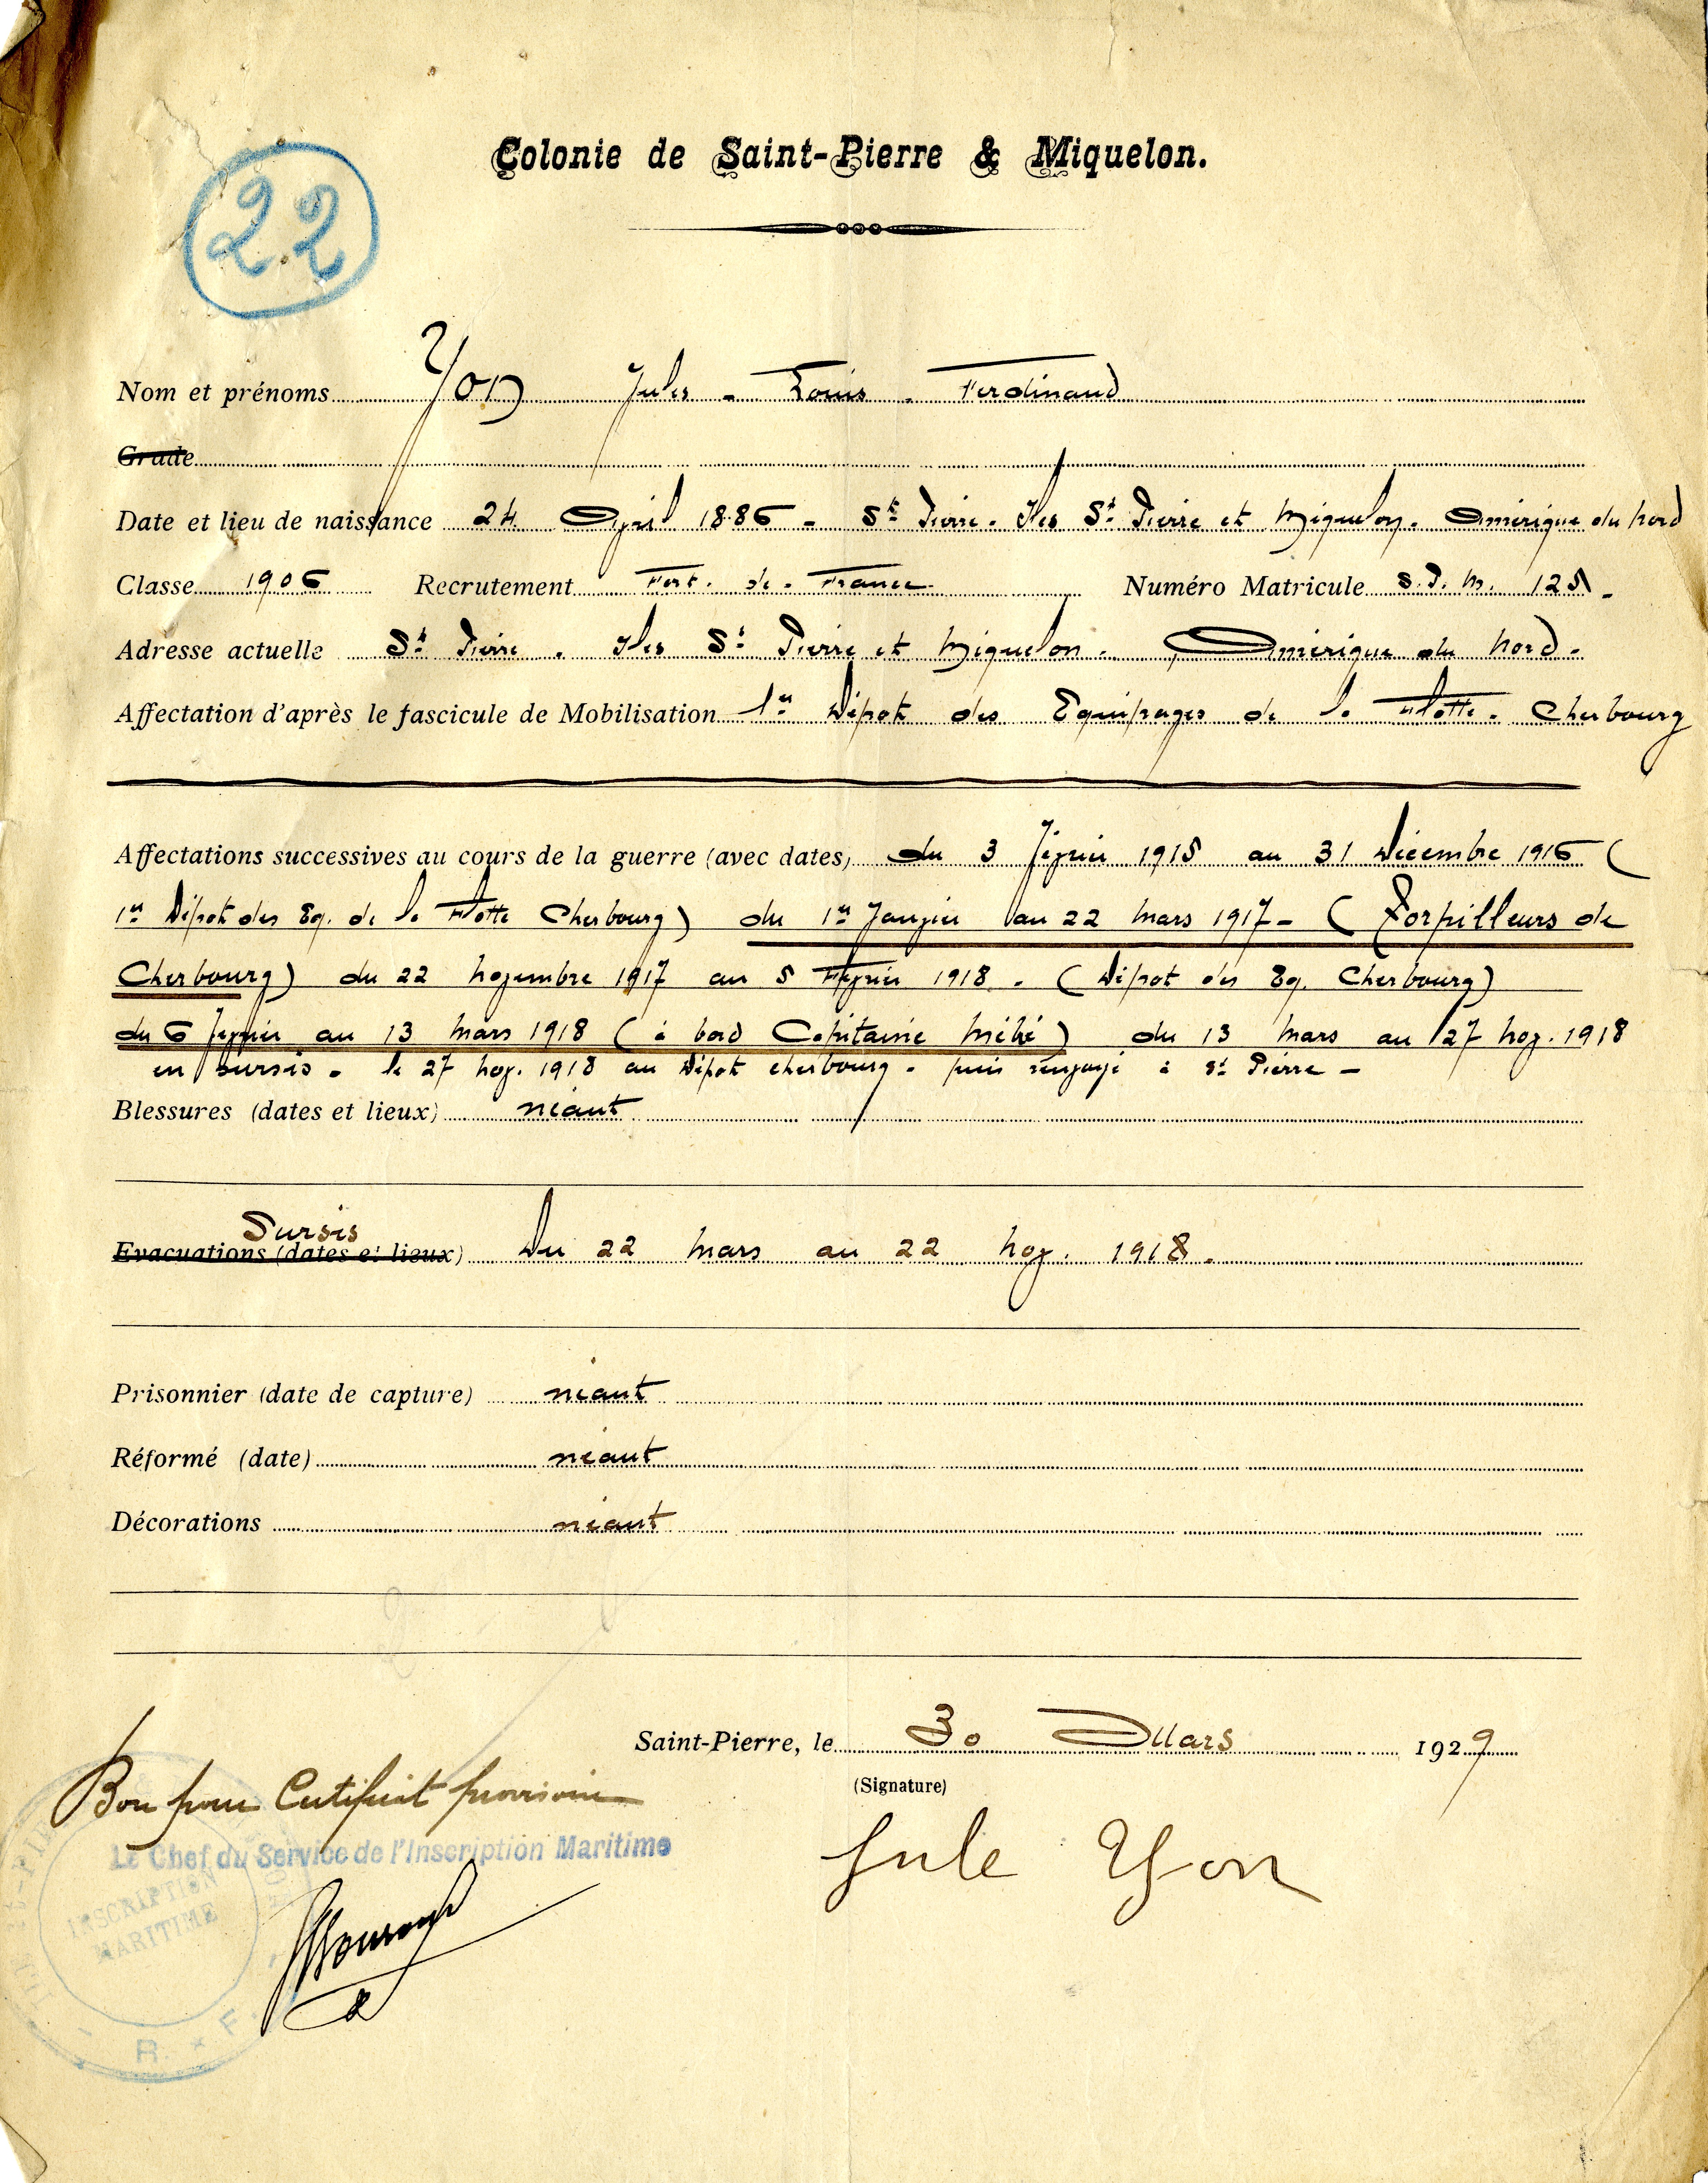 22
Colonie de Saint-Pierre & Miquelon.
Nom et prénoms Yon Jules - Louis - Ferdinand
Grade
Date et lieu de naissance 24 Avril 1886 - St Pierre - Iles St Pierre et Miquelon - Amérique du Nord
Classe 1906 Recrutement Fort - de - France - Numéro Matricule S.P.M. 125 -
Adresse actuelle St Pierre - Iles St Pierre et Miquelon - Amérique du Nord -
Affectation d'après le fascicule de Mobilisation 1er Dépôt des Equipages de la Flotte - Cherbourg
Affectations successives au cours de la guerre (avec dates) du 3 février 1915 au 31 Décembre 1916 (
1er Dépôt des Eq. de la Flotte Cherbourg) du 1er Janvier au 22 Mars 1917 - (Torpilleurs de
Cherbourg) du 22 novembre 1917 au 5 Février 1918 - (Dépot des Eq. Cherbourg)
du 6 février au 13 Mars 1918 (à bord Capitaine Méhé) du 13 Mars au 27 nov. 1918
en sursis - le 27 nov. 1918 au Dépôt cherbourg - puis à St Pierre -
Blessures (dates et lieux) néant
Sursis
Evacuations (dates et lieux) Du 22 Mars au 22 nov. 1918 -
Prisonnier (date de capture) néant
Réformé (date) néant
Décorations néant
Saint-Pierre, le 30 Mars 1929
(Signature)
Bon pour Certificat provisoire
Le Chef du Service de l'Inscription Maritime
Jule Yon
INSCRIPTION
MARITIME
R. F.